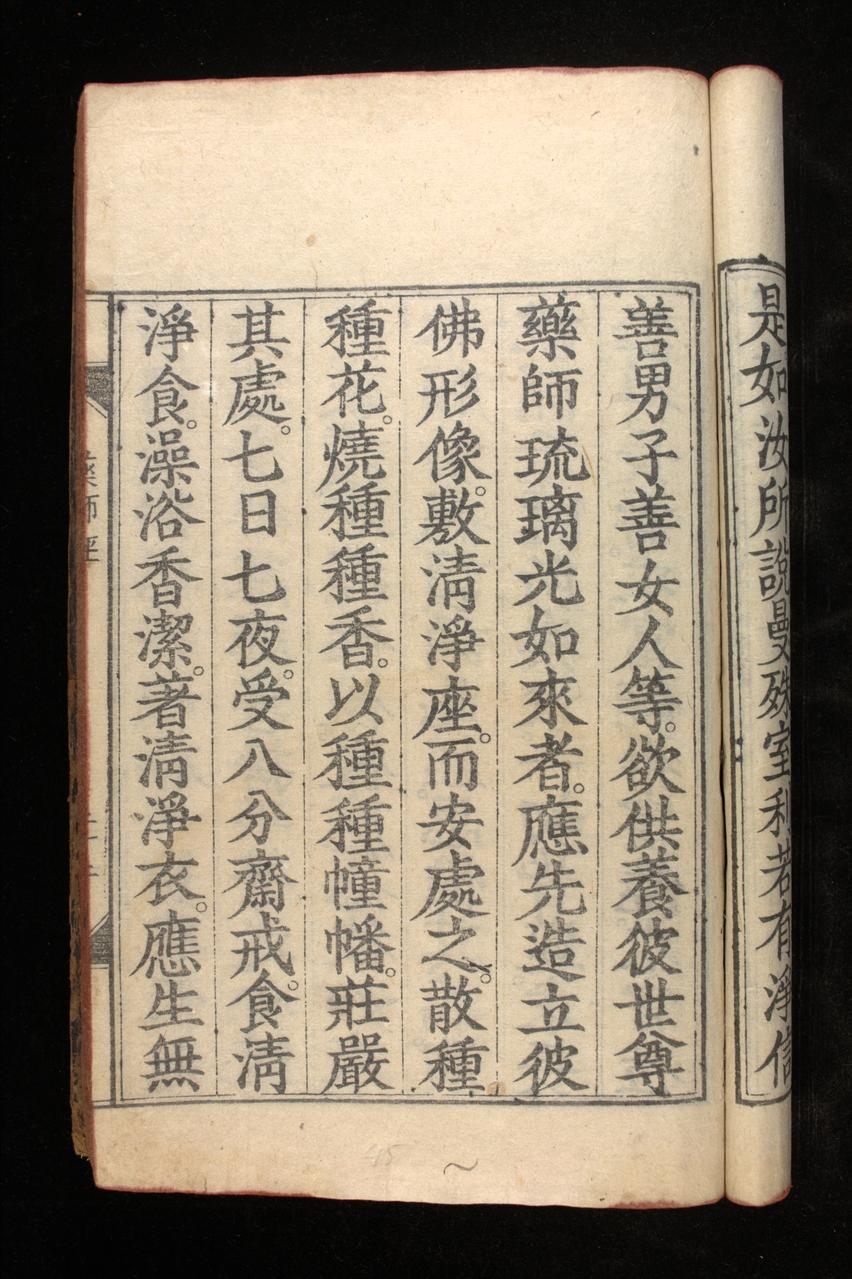 是如汝所說曼殊室利若有淨信
善男子善女人等。欲供養彼世尊
藥師琉璃光如來者。應先造立彼
佛形像。敷清淨座。而安處之。散種
種花。燒種種香。以種種幢幡。莊嚴
其處。七日七夜。受八分齋戒。食清
淨食。澡浴香潔。著清淨衣。應生無
藥師經
45